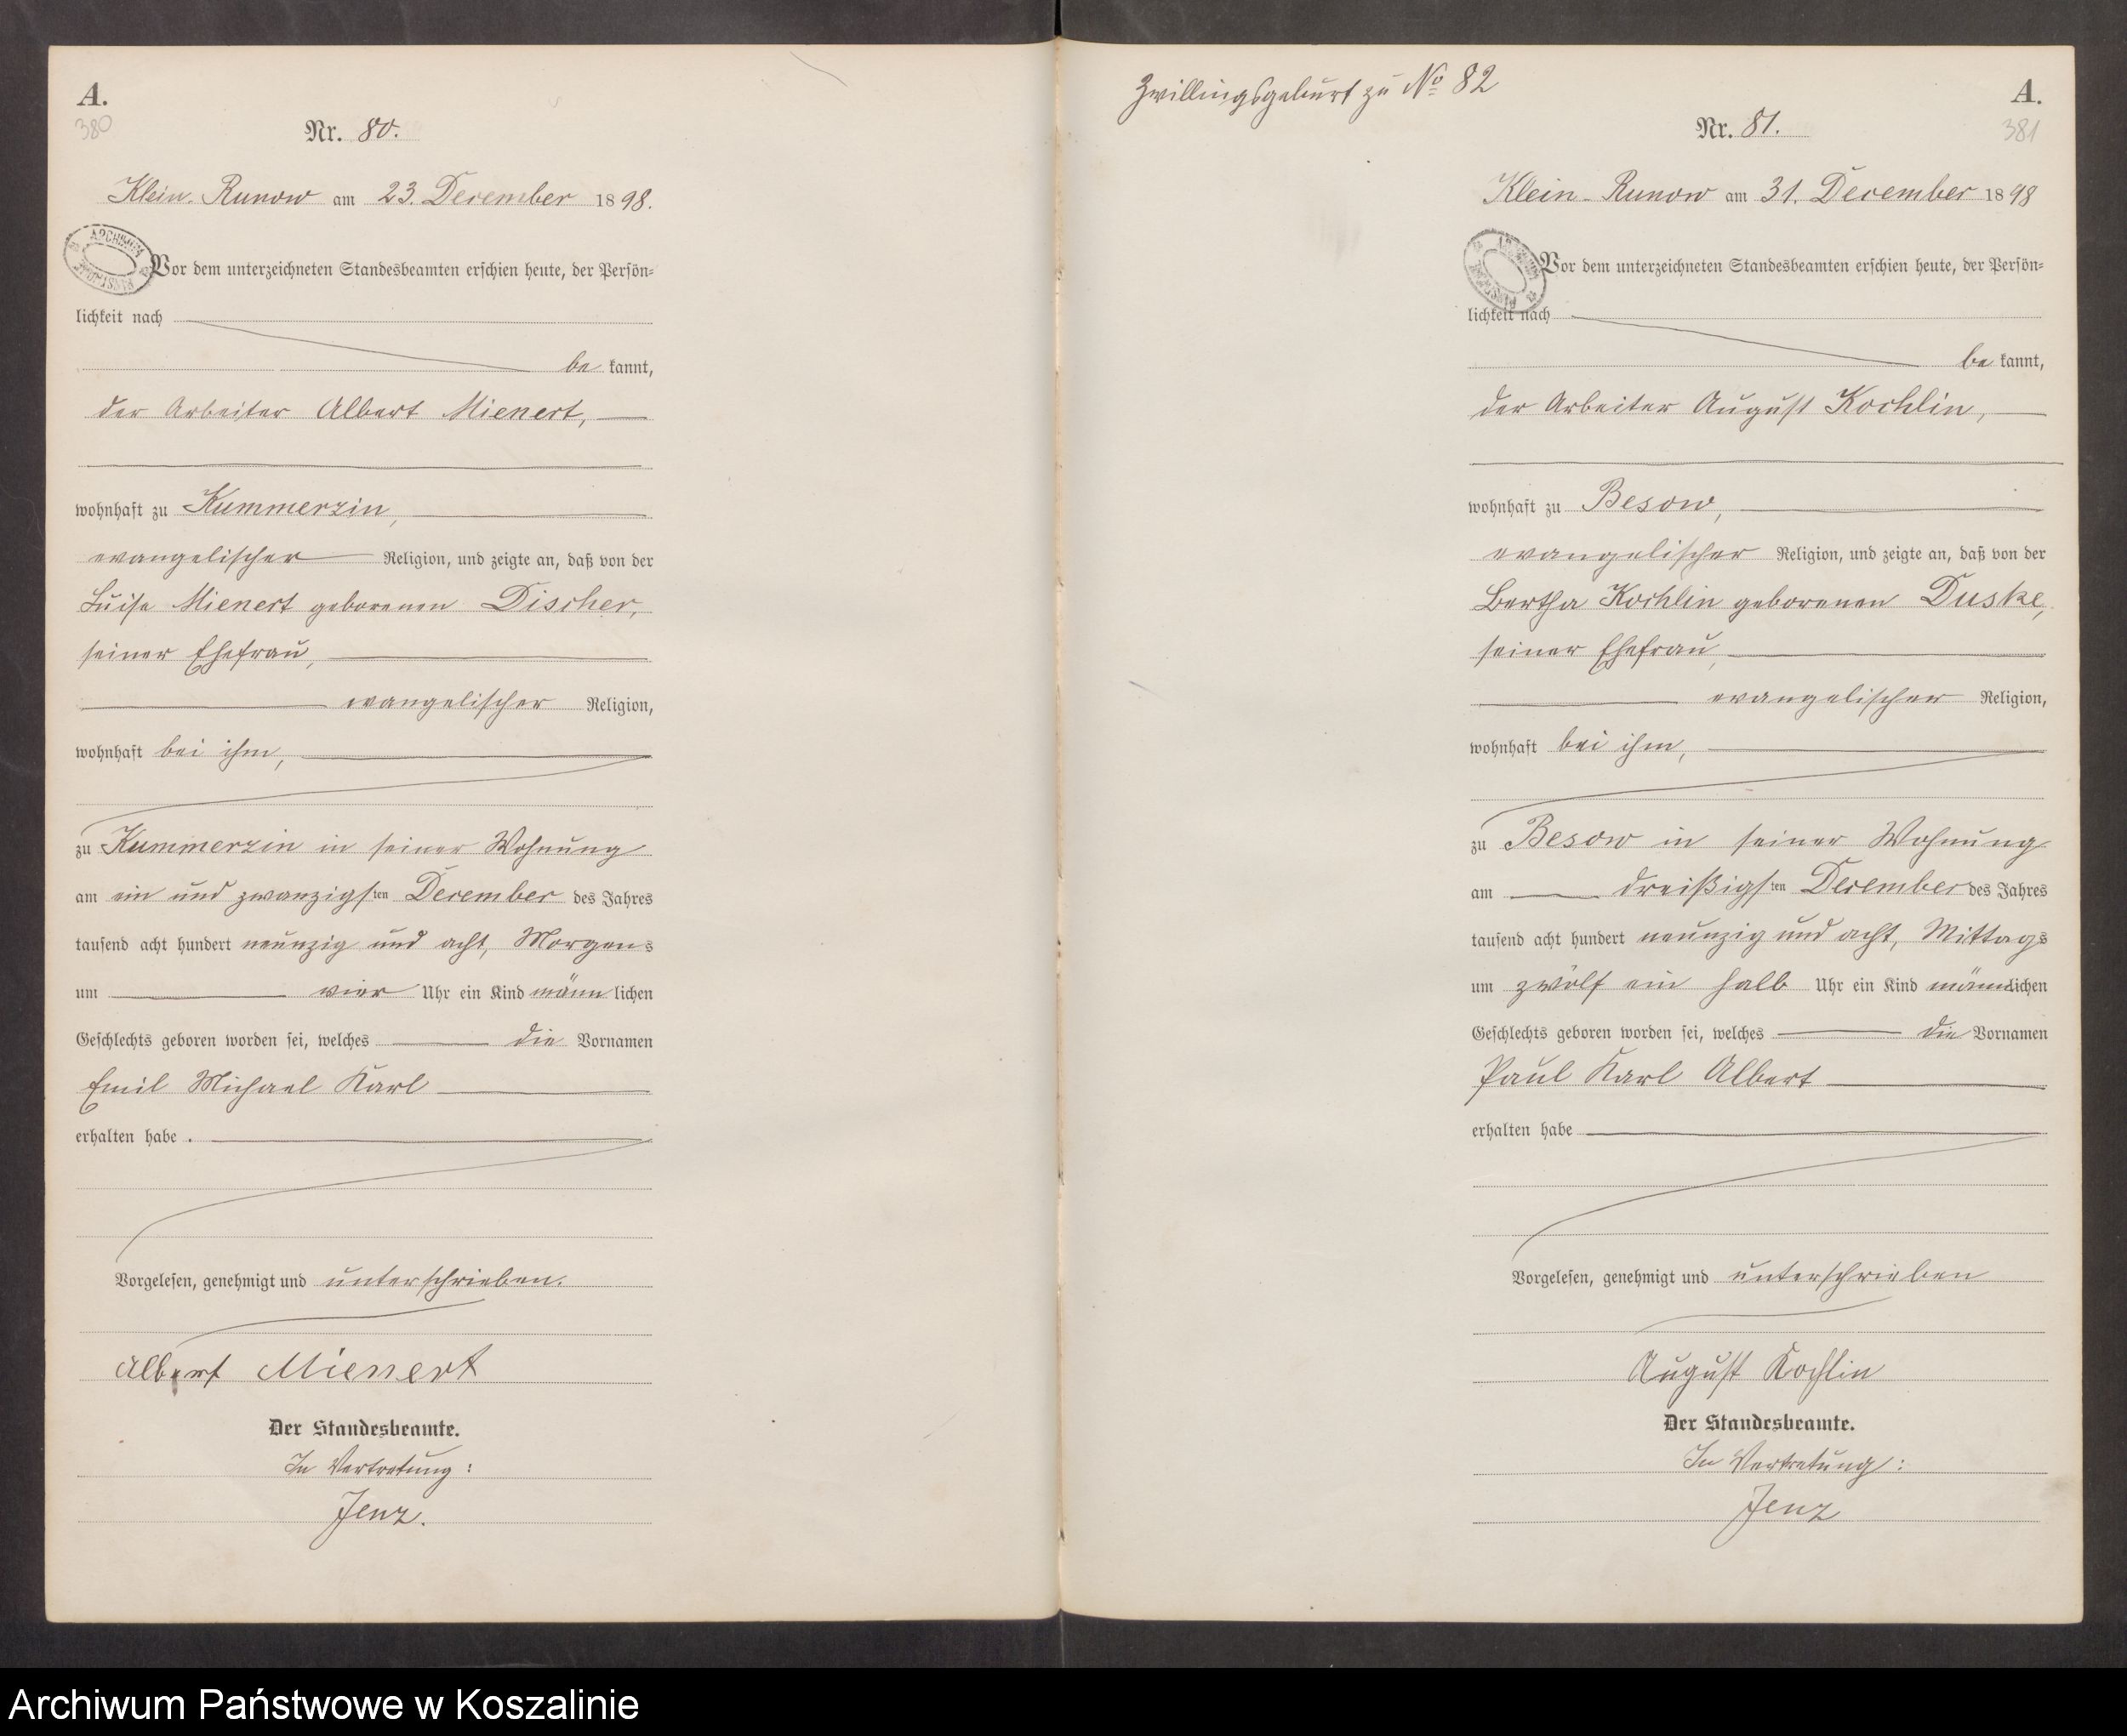 A.
380
Nr. 80.
Klein-Runow am 23. December 1898.
Vor dem unterzeichneten Standesbeamten erschien heute, der Persön=
lichkeit nach
be kannt,
der Arbeiter Albert Mienert,
wohnhaft zu Kummerzin,
evangelischer Religion, und zeigte an, daß von der
Luise Mienert geborenen Discher,
seiner Ehefrau,
evangelischer Religion,
wohnhaft bei ihm,
zu Kummerzin in seiner Wohnung
am ein und zwanzigsten December des Jahres
tausend acht hundert neunzig und acht, Morgens
um vier Uhr ein Kind männlichen
Geschlechts geboren worden sei, welches die Vornamen
Emil Michael Karl
erhalten habe.
Vorgelesen, genehmigt und unterschrieben.
Albert Mienert
Der Standesbeamte.
In Vertretung:
Jenz.
Zwillingsgeburt zu No 82
A.
381
Nr. 81.
Klein-Runow am 31. December 1898
Vor dem unterzeichneten Standesbeamten erschien heute, der Persön=
lichkeit nach
be kannt,
der Arbeiter August Kochlin,
wohnhaft zu Besow,
evangelischer Religion, und zeigte an, daß von der
Bertha Kochlin geborenen Duske,
seiner Ehefrau,
evangelischer Religion,
wohnhaft bei ihm,
zu Besow in seiner Wohnung
am dreißigsten December des Jahres
tausend acht hundert neunzig und acht, Mittags
um zwölf ein halb Uhr ein Kind männlichen
Geschlechts geboren worden sei, welches die Vornamen
Paul Karl Albert
erhalten habe
Vorgelesen, genehmigt und unterschrieben
August Kochlin
Der Standesbeamte.
In Vertretung:
Jenz
Archiwum Państwowe w Koszalinie